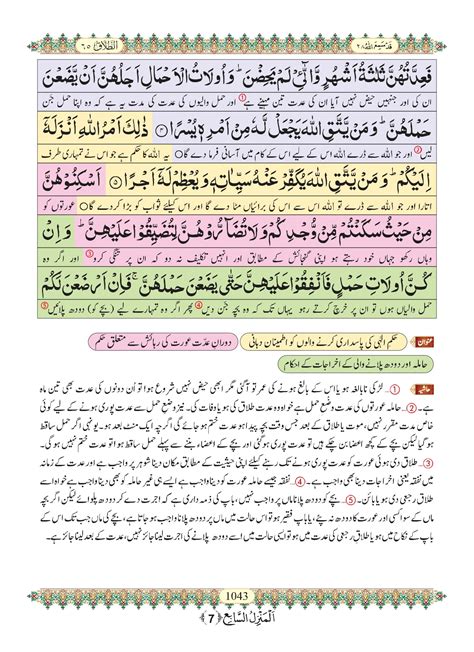 قَدْ سَمِعَ اللّٰهُ ٢٨
الطلاق ٦٥
فَعِدَّتُهُنَّ ثَلٰثَةُ اَشْهُرٍ وَّالّٰٓـِٔیْ لَمْ یَحِضْنَ ؕ وَ اُولَاتُ الْاَحْمَالِ اَجَلُهُنَّ اَنْ یَّضَعْنَ
ان کی اور جنہیں حیض نہیں آیا ان کی عدت تین مہینے ہے ① اور حمل والیوں کی عدت کی مدت یہ ہے کہ وہ اپنا حمل جن
حَمْلَهُنَّ ؕ وَ مَنْ یَّتَّقِ اللّٰهَ یَجْعَلْ لَّهٗ مِنْ اَمْرِهٖ یُسْرًا ۴ ذٰلِكَ اَمْرُ اللّٰهِ اَنْزَلَهٗۤ
لیں ② اور جو اللہ سے ڈرے اللہ اس کے لیے اس کے کام میں آسانی فرما دے گا ○ یہ اللہ کا حکم ہے جو اس نے تمہاری طرف
اِلَیْكُمْ ؕ وَ مَنْ یَّتَّقِ اللّٰهَ یُكَفِّرْ عَنْهُ سَیِّاٰتِهٖ وَ یُعْظِمْ لَهٗۤ اَجْرًا ۵ اَسْكِنُوْهُنَّ
اتارا اور جو اللہ سے ڈرے تو اللہ اس سے اس کی برائیاں مٹا دے گا اور اس کیلئے ثواب کو بڑا کردے گا ○ عورتوں کو
مِنْ حَیْثُ سَكَنْتُمْ مِّنْ وُّجْدِكُمْ وَ لَا تُضَآرُّوْهُنَّ لِتُضَیِّقُوْا عَلَیْهِنَّ ؕ وَ اِنْ
وہاں رکھو جہاں خود رہتے ہو اپنی گنجائش کے مطابق ③ اور انہیں تکلیف نہ دو کہ ان پر تنگی کرو اور اگر وہ
كُنَّ اُولَاتِ حَمْلٍ فَاَنْفِقُوْا عَلَیْهِنَّ حَتّٰى یَضَعْنَ حَمْلَهُنَّ ۚ فَاِنْ اَرْضَعْنَ لَكُمْ
حمل والیاں ہوں تو ان پر خرچ کرتے رہو یہاں تک کہ وہ بچہ جن دیں ④ پھر اگر وہ تمہارے لیے (بچے کو) دودھ پلائیں ⑤
عنوان حکم الٰہی کی پاسداری کرنے والوں کو اطمینان دہانی دورانِ عدّت عورت کی رہائش سے متعلق حکم
حاملہ اور دودھ پلانے والی کے اخراجات کے احکام
حاشیہ ①... لڑکی نابالغہ ہو یا اس کے بالغ ہونے کی عمر تو آگئی مگر ابھی حیض نہیں شروع ہوا تو ان دونوں کی عدت بھی تین ماہ
ہے۔ ②... حاملہ عورتوں کی عدت وضعِ حمل ہے خواہ وہ عدت طلاق کی ہو یا وفات کی۔ نیز وضعِ حمل سے عدت پوری ہونے کے لیے کوئی
خاص مدت مقرر نہیں، موت یا طلاق کے بعد جس وقت بچہ پیدا ہو عدت ختم ہو جائے گی اگرچہ ایک منٹ بعد ہو۔ یونہی اگر حمل ساقط
ہو گیا لیکن بچے کے کچھ اعضا بن چکے ہیں تو عدت پوری ہوگئی ورنہ نہیں، اور بچے کے اعضاء بننے سے پہلے حمل ساقط ہوا تو عدت ختم نہیں ہوگی۔
③... طلاق دی ہوئی عورت کو عدت پوری ہونے تک رہنے کیلئے اپنی حیثیت کے مطابق مکان دینا شوہر پر واجب ہے اور عدت کے زمانہ
میں نفقہ یعنی اخراجات دینا بھی واجب ہے۔ ④... نفقہ جیسے حاملہ عورت کو دینا واجب ہے ایسے ہی غیر حاملہ کو بھی دینا واجب ہے خواہ اس
کو طلاقِ رجعی دی ہو یا بائن۔ ⑤... بچے کو دودھ پلانا ماں پر واجب نہیں، باپ کی ذمہ داری ہے کہ اجرت دے کر دودھ پلوائے لیکن اگر بچہ
ماں کے سوا کسی اور عورت کا دودھ نہ پئے، یا باپ فقیر ہو تو اس حالت میں ماں پر دودھ پلانا واجب ہو جاتا ہے، بچے کی ماں جب تک اس کے
باپ کے نکاح میں ہو یا طلاقِ رجعی کی عدت میں ہو ایسی حالت میں اس کو دودھ پلانے کی اجرت لینا جائز نہیں، عدت کے بعد لینا جائز ہے۔
1043
اَلْمَنْزِلُ السَّابِعُ ﴿7﴾